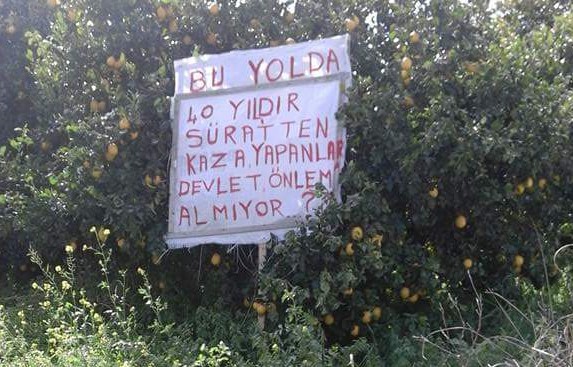 BU YOLDA
40 YILDIR
SÜRATTEN
KAZA,YAPANLAR
DEVLET,ÖNLEM
ALMIYOR ?